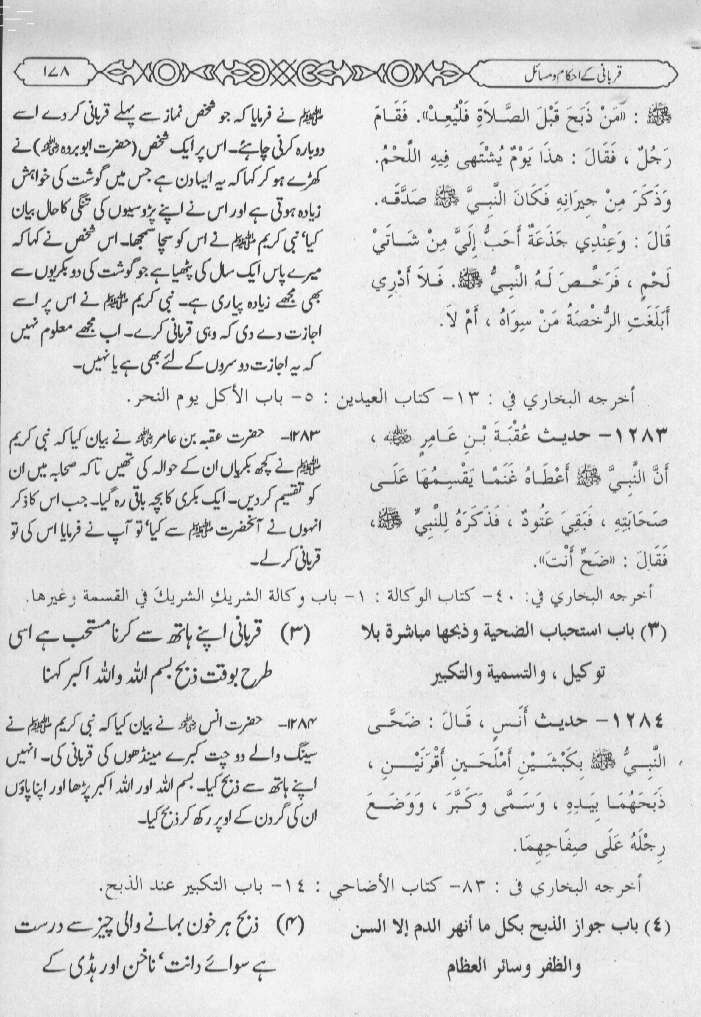 قربانی کے احکام و مسائل
۱۷۸
ﷺ : «مَنْ ذَبَحَ قَبْلَ الصَّلَاةِ فَلْيُعِدْ». فَقَامَ
رَجُلٌ ، فَقَالَ : هذَا يَوْمٌ يُشْتَهى فِيهِ اللَّحْمُ.
وَذَكَرَ مِنْ جِيرَانِهِ فَكَانَ النَّبِيَّ ﷺ صَدَّقَه.
قَالَ : وَعِنْدِي جَذَعَةٌ أَحَبُّ إِلَيَّ مِنْ شَاتَيْ
لَحْمٍ ، فَرَخَّصَ لَهُ النَّبِيُّ ﷺ. فَلاَ أَدْرِي
أَبَلَغَتِ الرُّخْصَةُ مَنْ سِوَاهُ ، أَمْ لاَ.
ﷺ نے فرمایا کہ جو شخص نماز سے پہلے قربانی کر دے اسے
دوبارہ کرنی چاہئے۔ اس پر ایک شخص (حضرت ابو بردہ ؓ) نے
کھڑے ہو کر کہا کہ یہ ایسا دن ہے جس میں گوشت کی خواہش
زیادہ ہوتی ہے اور اس نے اپنے پڑوسیوں کی تنگی کا حال بیان
کیا‘ نبی کریم ﷺ نے اس کو سچا سمجھا۔ اس شخص نے کہا کہ
میرے پاس ایک سال کی پٹھیا ہے جو گوشت کی دو بکریوں سے
بھی مجھے زیادہ پیاری ہے۔ نبی کریم ﷺ نے اس پر اسے
اجازت دے دی کہ وہی قربانی کرے۔ اب مجھے معلوم نہیں
کہ یہ اجازت دوسروں کے لئے بھی ہے یا نہیں۔
أخرجه البخاري في : ١٣- كتاب العيدين : ٥- باب الأكل يوم النحر.
١٢٨٣- حديث عُقْبَةَ بْنِ عَامِرٍ ؓ ،
أَنَّ النَّبِيَّ ﷺ أَعْطَاهُ غَنَمًا يَقْسِمُهَا عَلَى
صَحَابَتِهِ ، فَبَقِيَ عَتُودٌ ، فَذَكَرَهُ لِلنَّبِيِّ ﷺ،
فَقَالَ : «ضَحِّ أَنْتَ».
۱۲۸۳- حضرت عقبہ بن عامر ؓ نے بیان کیا کہ نبی کریم
ﷺ نے کچھ بکریاں ان کے حوالہ کی تھیں تاکہ صحابہ میں ان
کو تقسیم کر دیں۔ ایک بکری کا بچہ باقی رہ گیا۔ جب اس کا ذکر
انہوں نے آنحضرت ﷺ سے کیا‘ تو آپ نے فرمایا اس کی تو
قربانی کر لے۔
أخرجه البخاري في: ٤٠- كتاب الوكالة : ١- باب وكالة الشريكِ الشريكَ في القسمة وغيرها.
(٣) باب استحباب الضحية وذبحها مباشرة بلا
توكيل ، والتسمية والتكبير
(۳) قربانی اپنے ہاتھ سے کرنا مستحب ہے اسی
طرح بوقت ذبح بسم اللہ واللہ اکبر کہنا
١٢٨٤- حديث أَنَسٍ ، قَالَ : ضَحَّى
النَّبِيُّ ﷺ بِكَبْشَيْنِ أَمْلَحَينِ أَقْرَنَيْنِ ،
ذَبَحَهُمَا بِيَدِهِ ، وَسَمَّى وَكَبَّرَ ، وَوَضَعَ
رِجْلَهُ عَلَى صِفَاحِهِمَا.
۱۲۸۴- حضرت انس ؓ نے بیان کیا کہ نبی کریم ﷺ نے
سینگ والے دو چت کبرے مینڈھوں کی قربانی کی۔ انہیں
اپنے ہاتھ سے ذبح کیا۔ بسم اللہ اور اللہ اکبر پڑھا اور اپنا پاؤں
ان کی گردن کے اوپر رکھ کر ذبح کیا۔
أخرجه البخاري في : ٨٣- كتاب الأضاحي : ١٤- باب التكبير عند الذبح.
(٤) باب جواز الذبح بكل ما أنهر الدم إلا السن
والظفر وسائر العظام
(۴) ذبح ہر خون بہانے والی چیز سے درست
ہے سوائے دانت‘ ناخن اور ہڈی کے